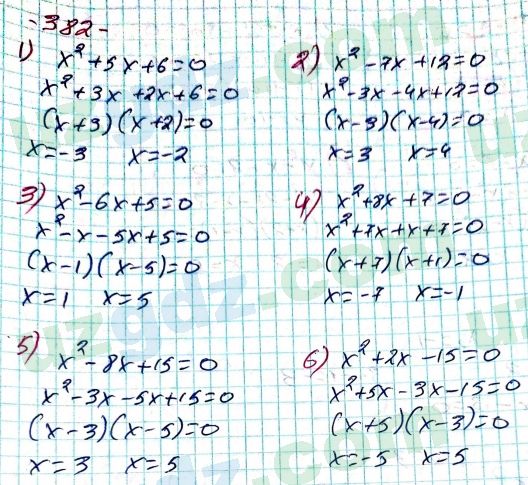 -382-
1) x²+5x+6=0
x²+3x+2x+6=0
(x+3)(x+2)=0
x=-3 x=-2
2) x²-7x+12=0
x²-3x-4x+12=0
(x-3)(x-4)=0
x=3 x=4
3) x²-6x+5=0
x²-x-5x+5=0
(x-1)(x-5)=0
x=1 x=5
4) x²+8x+7=0
x²+7x+x+7=0
(x+7)(x+1)=0
x=-7 x=-1
5) x²-8x+15=0
x²-3x-5x+15=0
(x-3)(x-5)=0
x=3 x=5
6) x²+2x-15=0
x²+5x-3x-15=0
(x+5)(x-3)=0
x=-5 x=5
uzgdz.com